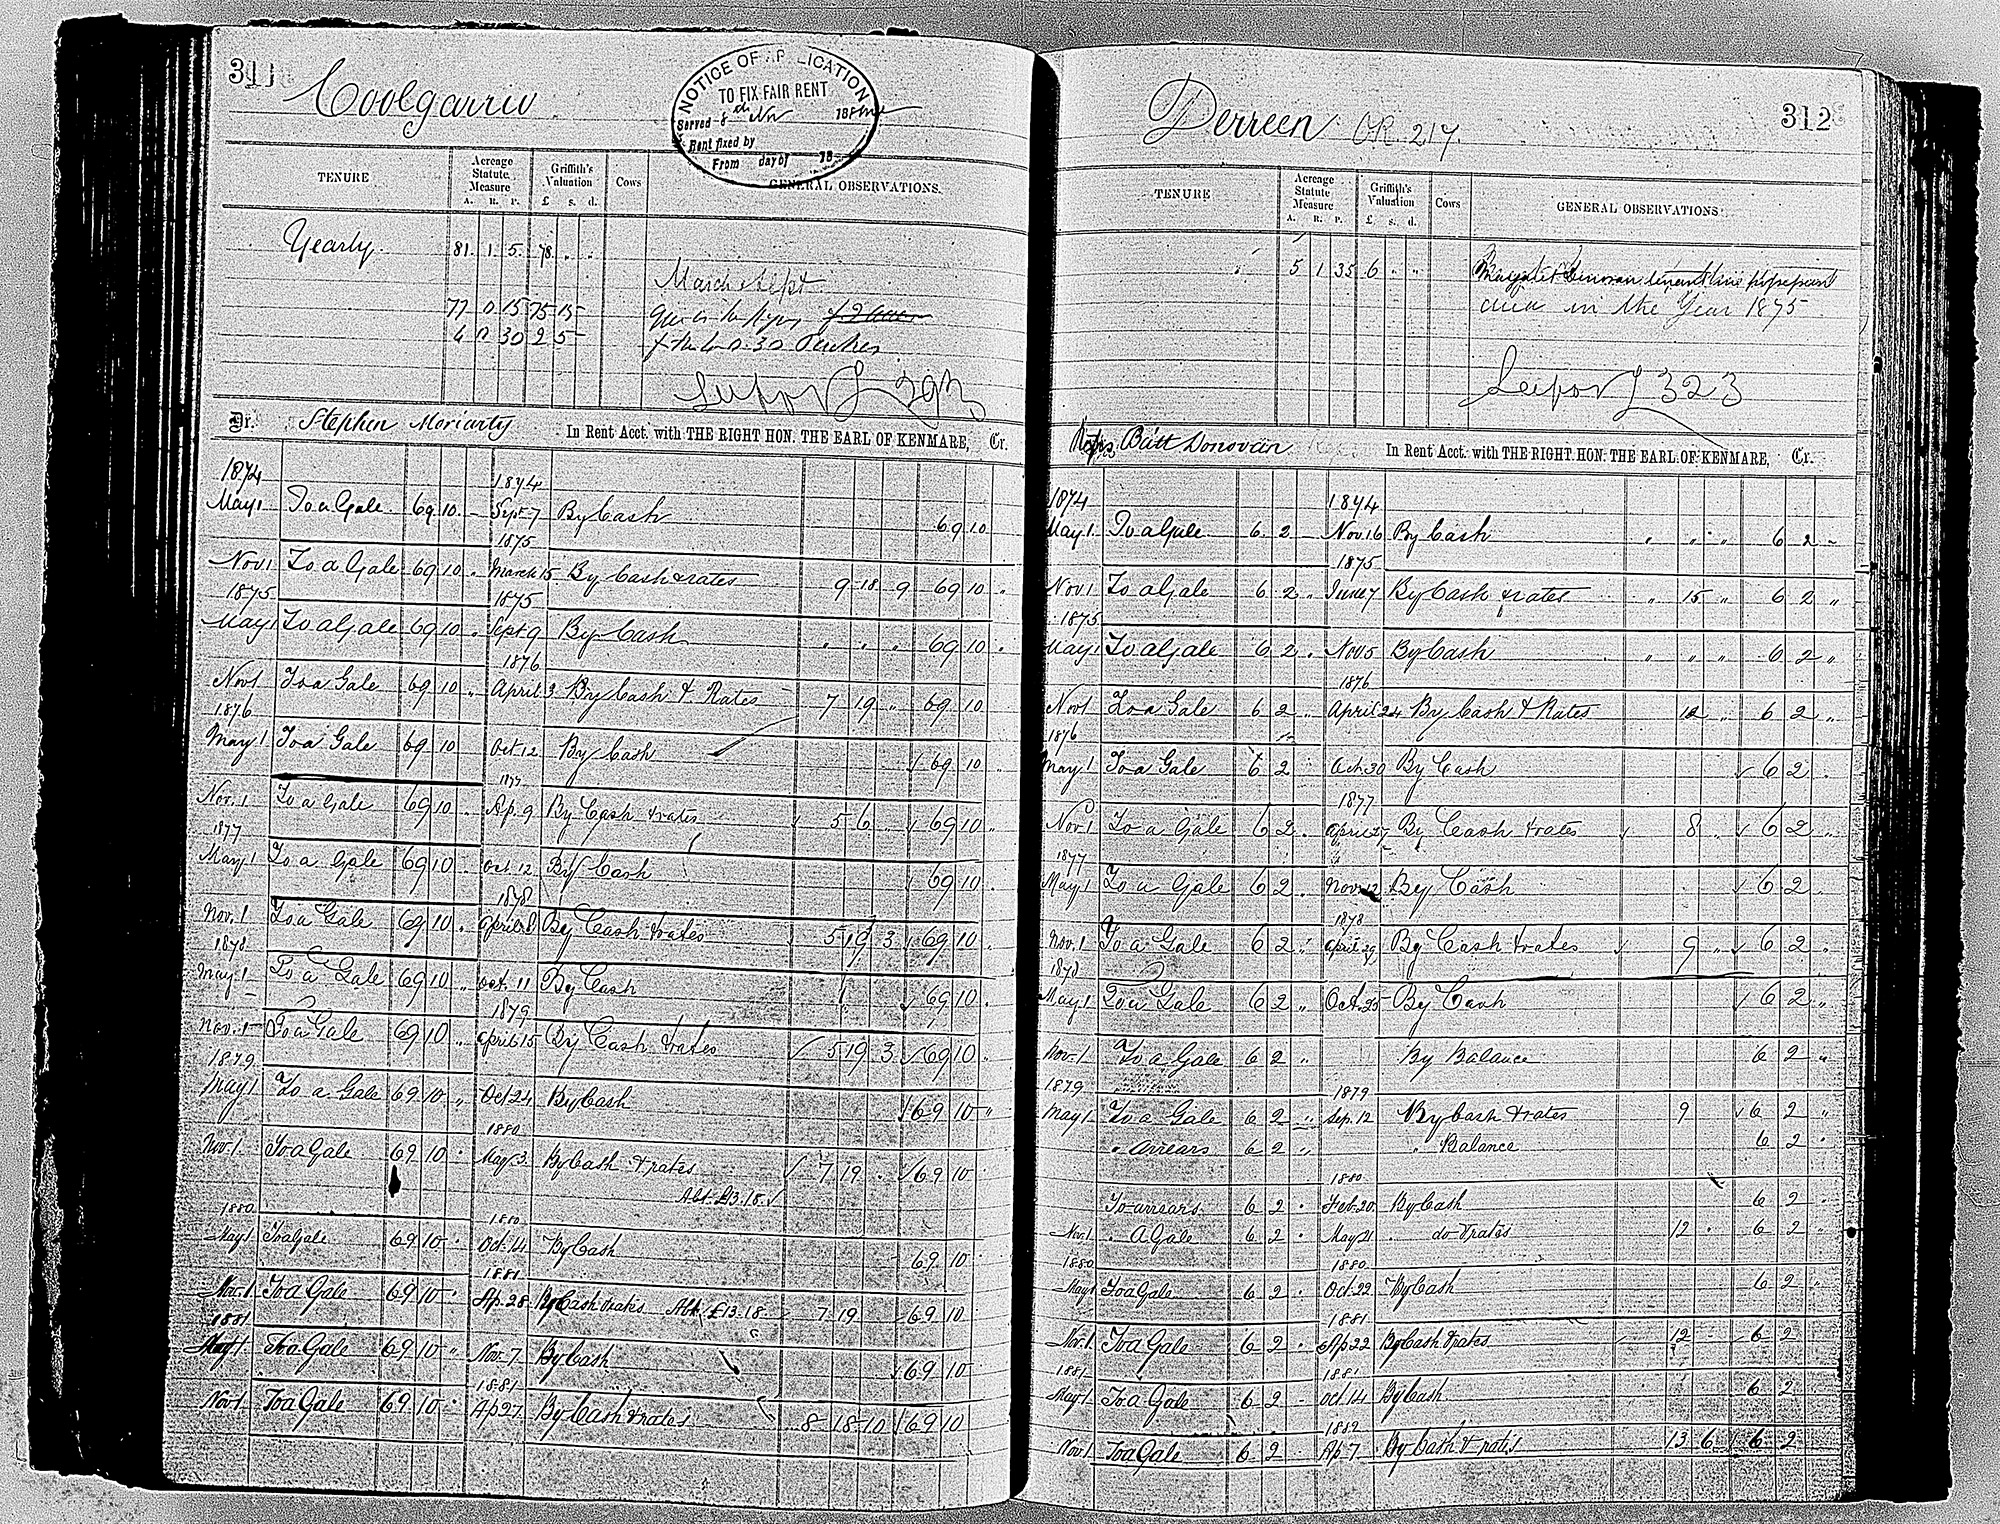 311
Coolgarriv
NOTICE OF APPLICATION
TO FIX FAIR RENT
Served 8th Nov 18
Rent fixed by
From day of 18
TENURE Acreage Statute Measure Griffith's Valuation Cows GENERAL OBSERVATIONS.
A. R. P. £ s. d.
Yearly 81 1 5 78 " "
March & Sept
77 0 15 75 15
4 0 30 2 5
4 0 30 Perches
Dr. Stephen Moriarty In Rent Acct. with THE RIGHT HON. THE EARL OF KENMARE, Cr.
1874 1874
May 1 To a Gale 69 10 Sept 7 By Cash 69 10
1875
Nov 1 To a Gale 69 10 March 15 By Cash & rates 9 18 9 69 10
1875 1875
May 1 To a Gale 69 10 Sept 9 By Cash " " " 69 10
1876
Nov 1 To a Gale 69 10 April 3 By Cash & Rates 7 19 " 69 10
1876
May 1 To a Gale 69 10 Oct. 12 By Cash 69 10
1877
Nov. 1 To a Gale 69 10 Ap. 9 By Cash & rates 5 6 69 10
1877
May 1 To a Gale 69 10 Oct. 12 By Cash 69 10
1878
Nov. 1 To a Gale 69 10 April 8 By Cash & rates 5 19 3 69 10
1878
May 1 To a Gale 69 10 Oct. 11 By Cash 69 10
1879
Nov. 1 To a Gale 69 10 April 15 By Cash & rates 5 19 3 69 10
1879
May 1 To a Gale 69 10 Oct 24 By Cash 69 10
1880
Nov. 1 To a Gale 69 10 May 3 By Cash & rates 7 19 69 10
Abt. £13.18
1880 1880
May 1 To a Gale 69 10 Oct. 14 By Cash 69 10
1881
Nov. 1 To a Gale 69 10 Ap. 28 By Cash & rates Abt. £13.18 7 19 69 10
1881
May 1 To a Gale 69 10 Nov. 7 By Cash 69 10
1881
Nov 1 To a Gale 69 10 Ap 27 By Cash & rates 8 18 10 69 10
312
Derreen OR. 217.
TENURE Acreage Statute Measure Griffith's Valuation Cows GENERAL OBSERVATIONS.
A. R. P. £ s. d.
5 1 35 6 " " Donovan tenant
died in the Year 1875
See for L 323
Batt Donovan In Rent Acct. with THE RIGHT HON. THE EARL OF KENMARE, Cr.
1874 1874
May 1 To a Gale 6 2 Nov. 16 By Cash " " " 6 2
1875
Nov 1 To a Gale 6 2 " June 7 By Cash & rates " 15 " 6 2 "
1875
May 1 To a Gale 6 2 Nov 5 By Cash " " " 6 2 "
1876
Nov 1 To a Gale 6 2 " April 24 By Cash & Rates 12 " 6 2 "
1876
May 1 To a Gale 6 2 Oct. 30 By Cash 6 2
1877
Nov. 1 To a Gale 6 2 April 27 By Cash & rates 8 6 2
1877
May 1 To a Gale 6 2 Nov. 12 By Cash 6 2
1878
Nov. 1 To a Gale 6 2 April 29 By Cash & rates 9 " 6 2
1878
May 1 To a Gale 6 2 " Oct. 25 By Cash 6 2 "
Nov. 1 To a Gale 6 2 " By Balance 6 2 "
1879 1879
May 1 To a Gale 6 2 " Sep. 12 By Cash & rates 9 6 2 "
" arrears 6 2 " " Balance 6 2
1880
To arrears 6 2 Feb. 20 By Cash 6 2
Nov. 1 " A Gale 6 2 May 21 do & rates 12 6 2
1880 1880
May 1 To a Gale 6 2 Oct. 22 By Cash 6 2
1881
Nov. 1 To a Gale 6 2 Ap 22 By Cash & rates 12 6 2
1881 1881
May 1 To a Gale 6 2 Oct 14 By Cash 6 2
1882
Nov. 1 To a Gale 6 2 Ap. 7 By Cash & rates 13 6 6 2